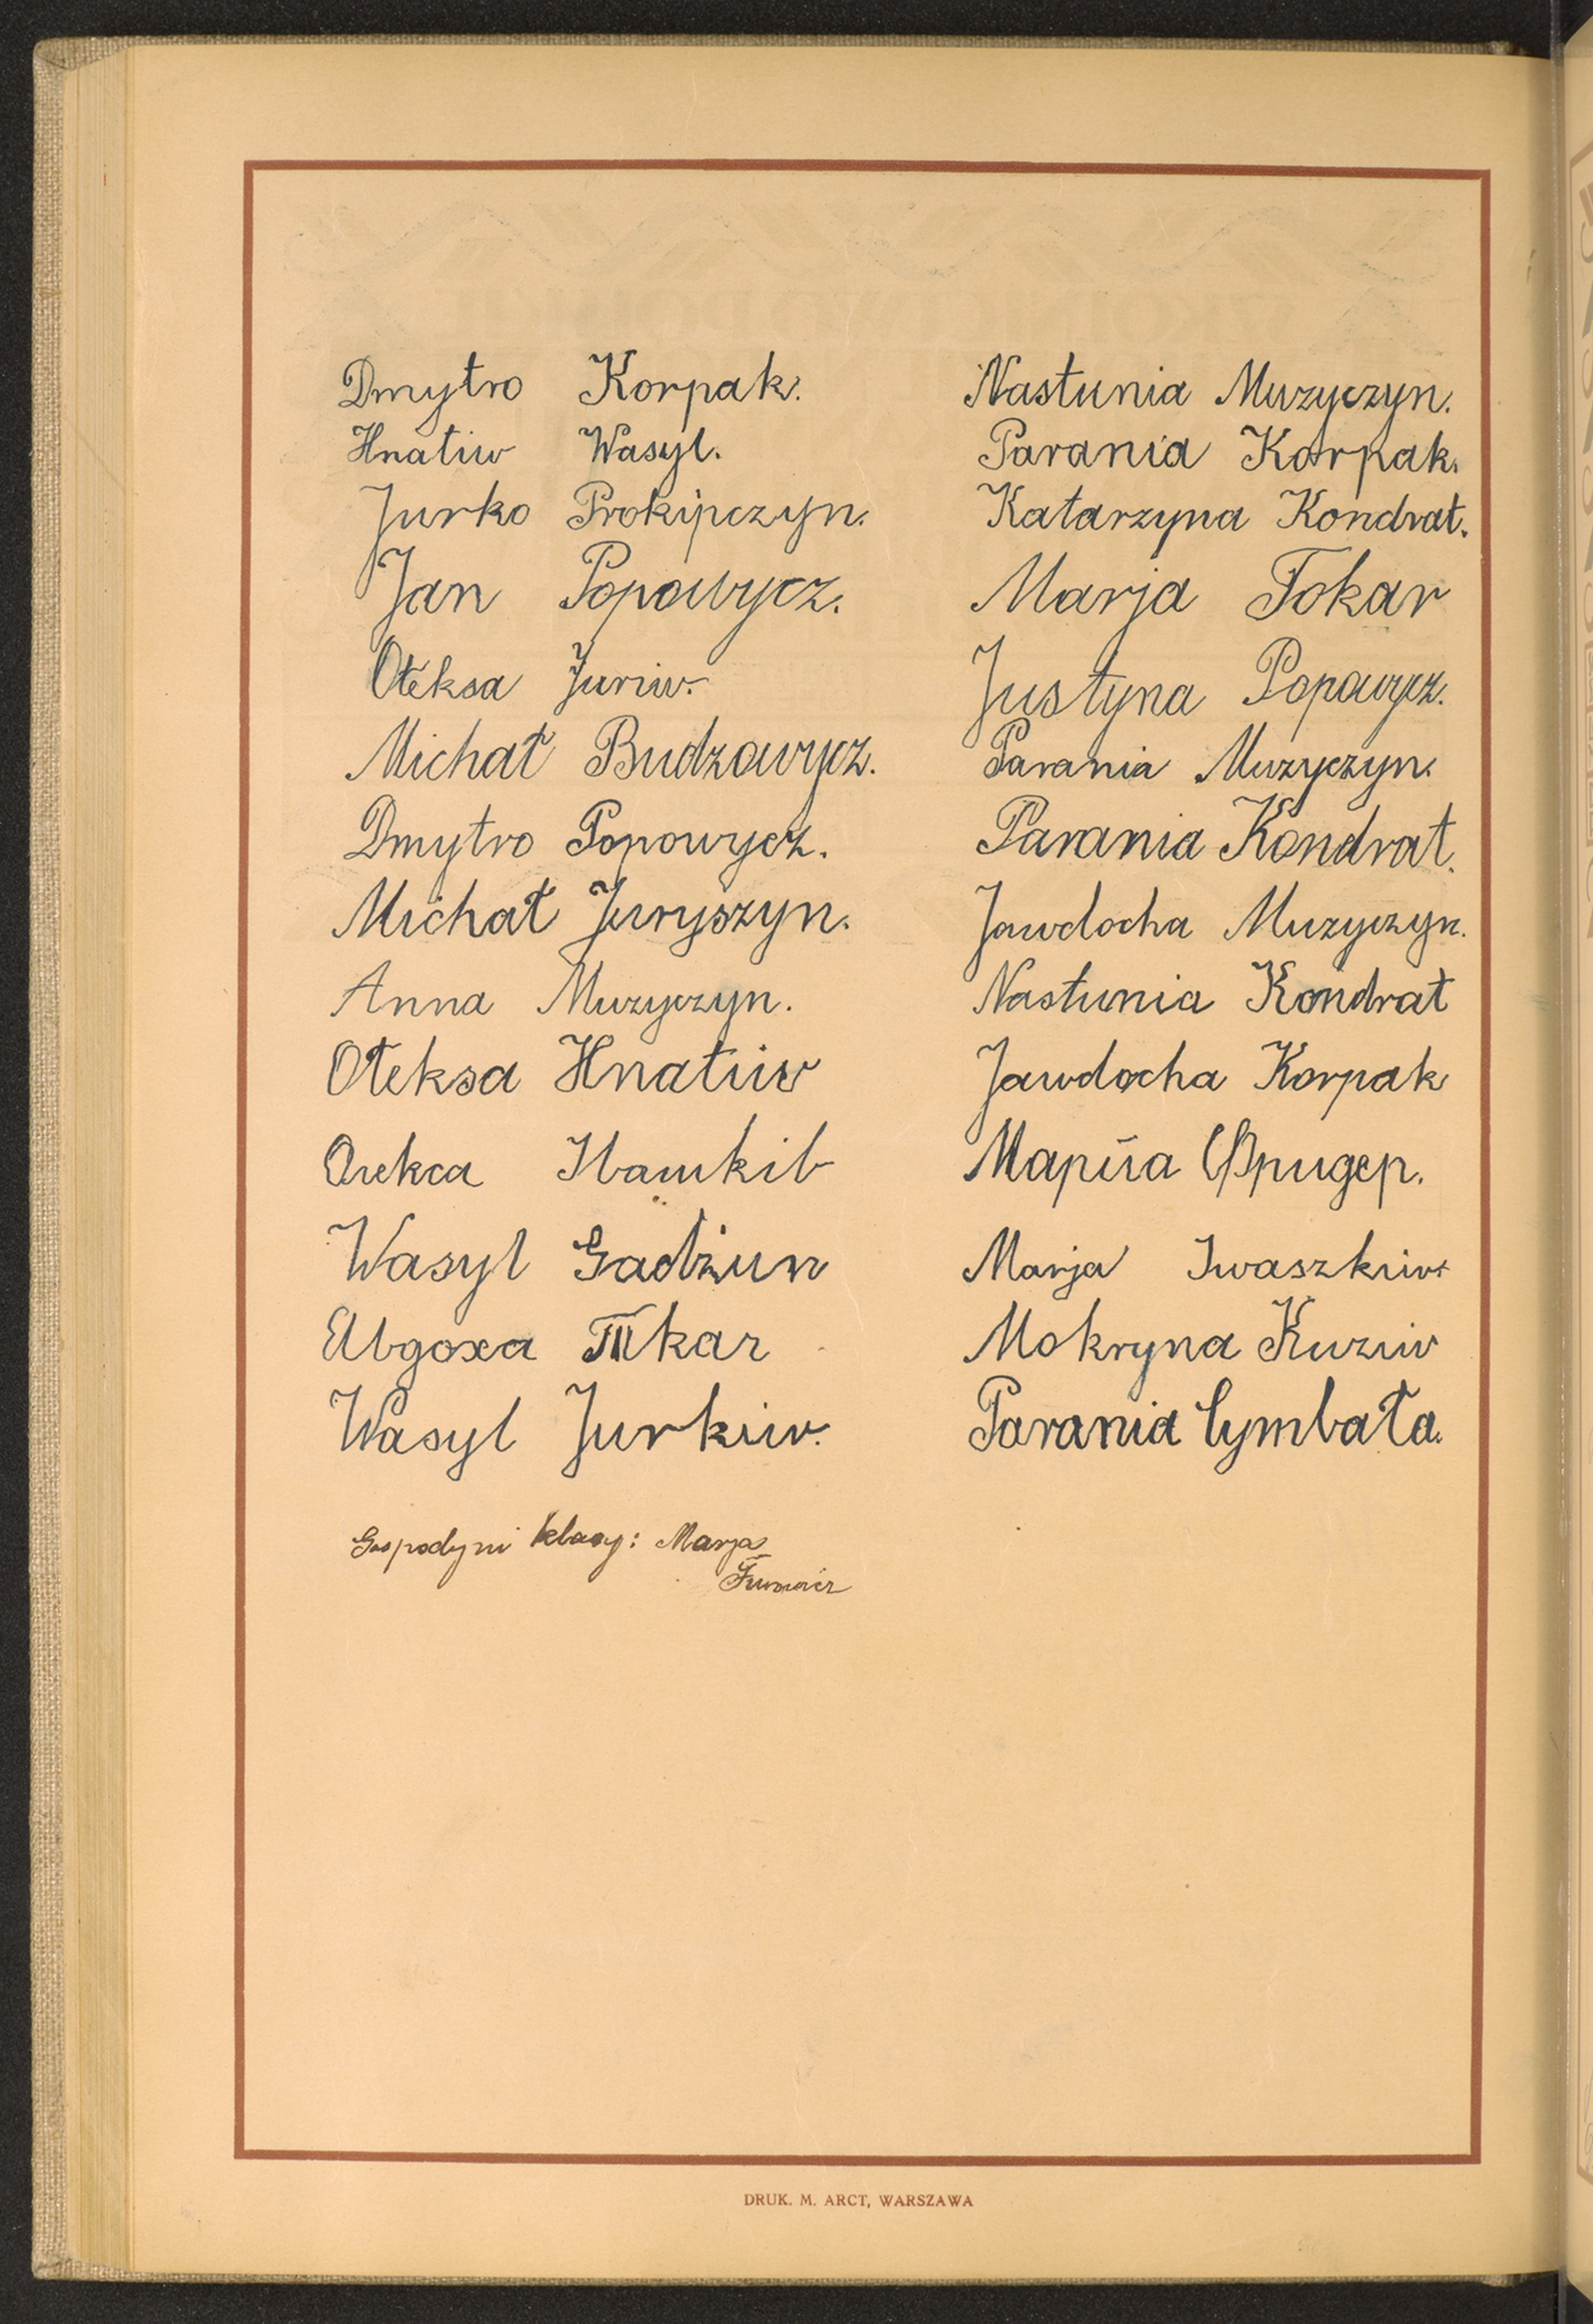 Dmytro Korpak.
Hnatiw Wasyl.
Jurko Prokipczyn.
Jan Popowycz.
Ołeksa Juriw.
Michał Budzowycz.
Dmytro Popowycz.
Michał Juryszyn.
Anna Muzyczyn.
Ołeksa Hnatiw
Олекса Івашків
Wasyl Gadziun
Евдоха Ткач
Wasyl Jurkiw.
Gospodyni klasy: Marja
Nastunia Muzyczyn.
Parania Korpak.
Katarzyna Kondrat.
Marja Tokar
Justyna Popowycz.
Parania Muzyczyn.
Parania Kondrat.
Jawdocha Muzyczyn.
Nastunia Kondrat
Jawdocha Korpak
Марійа Фридер.
Marja Iwaszkiw.
Mokryna Kuziw
Parania Cymbała.
DRUK. M. ARCT, WARSZAWA